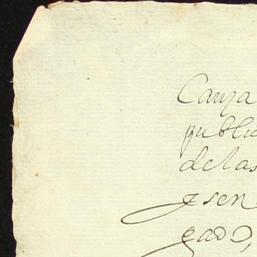 Causa
public
de las
y sen
gado,